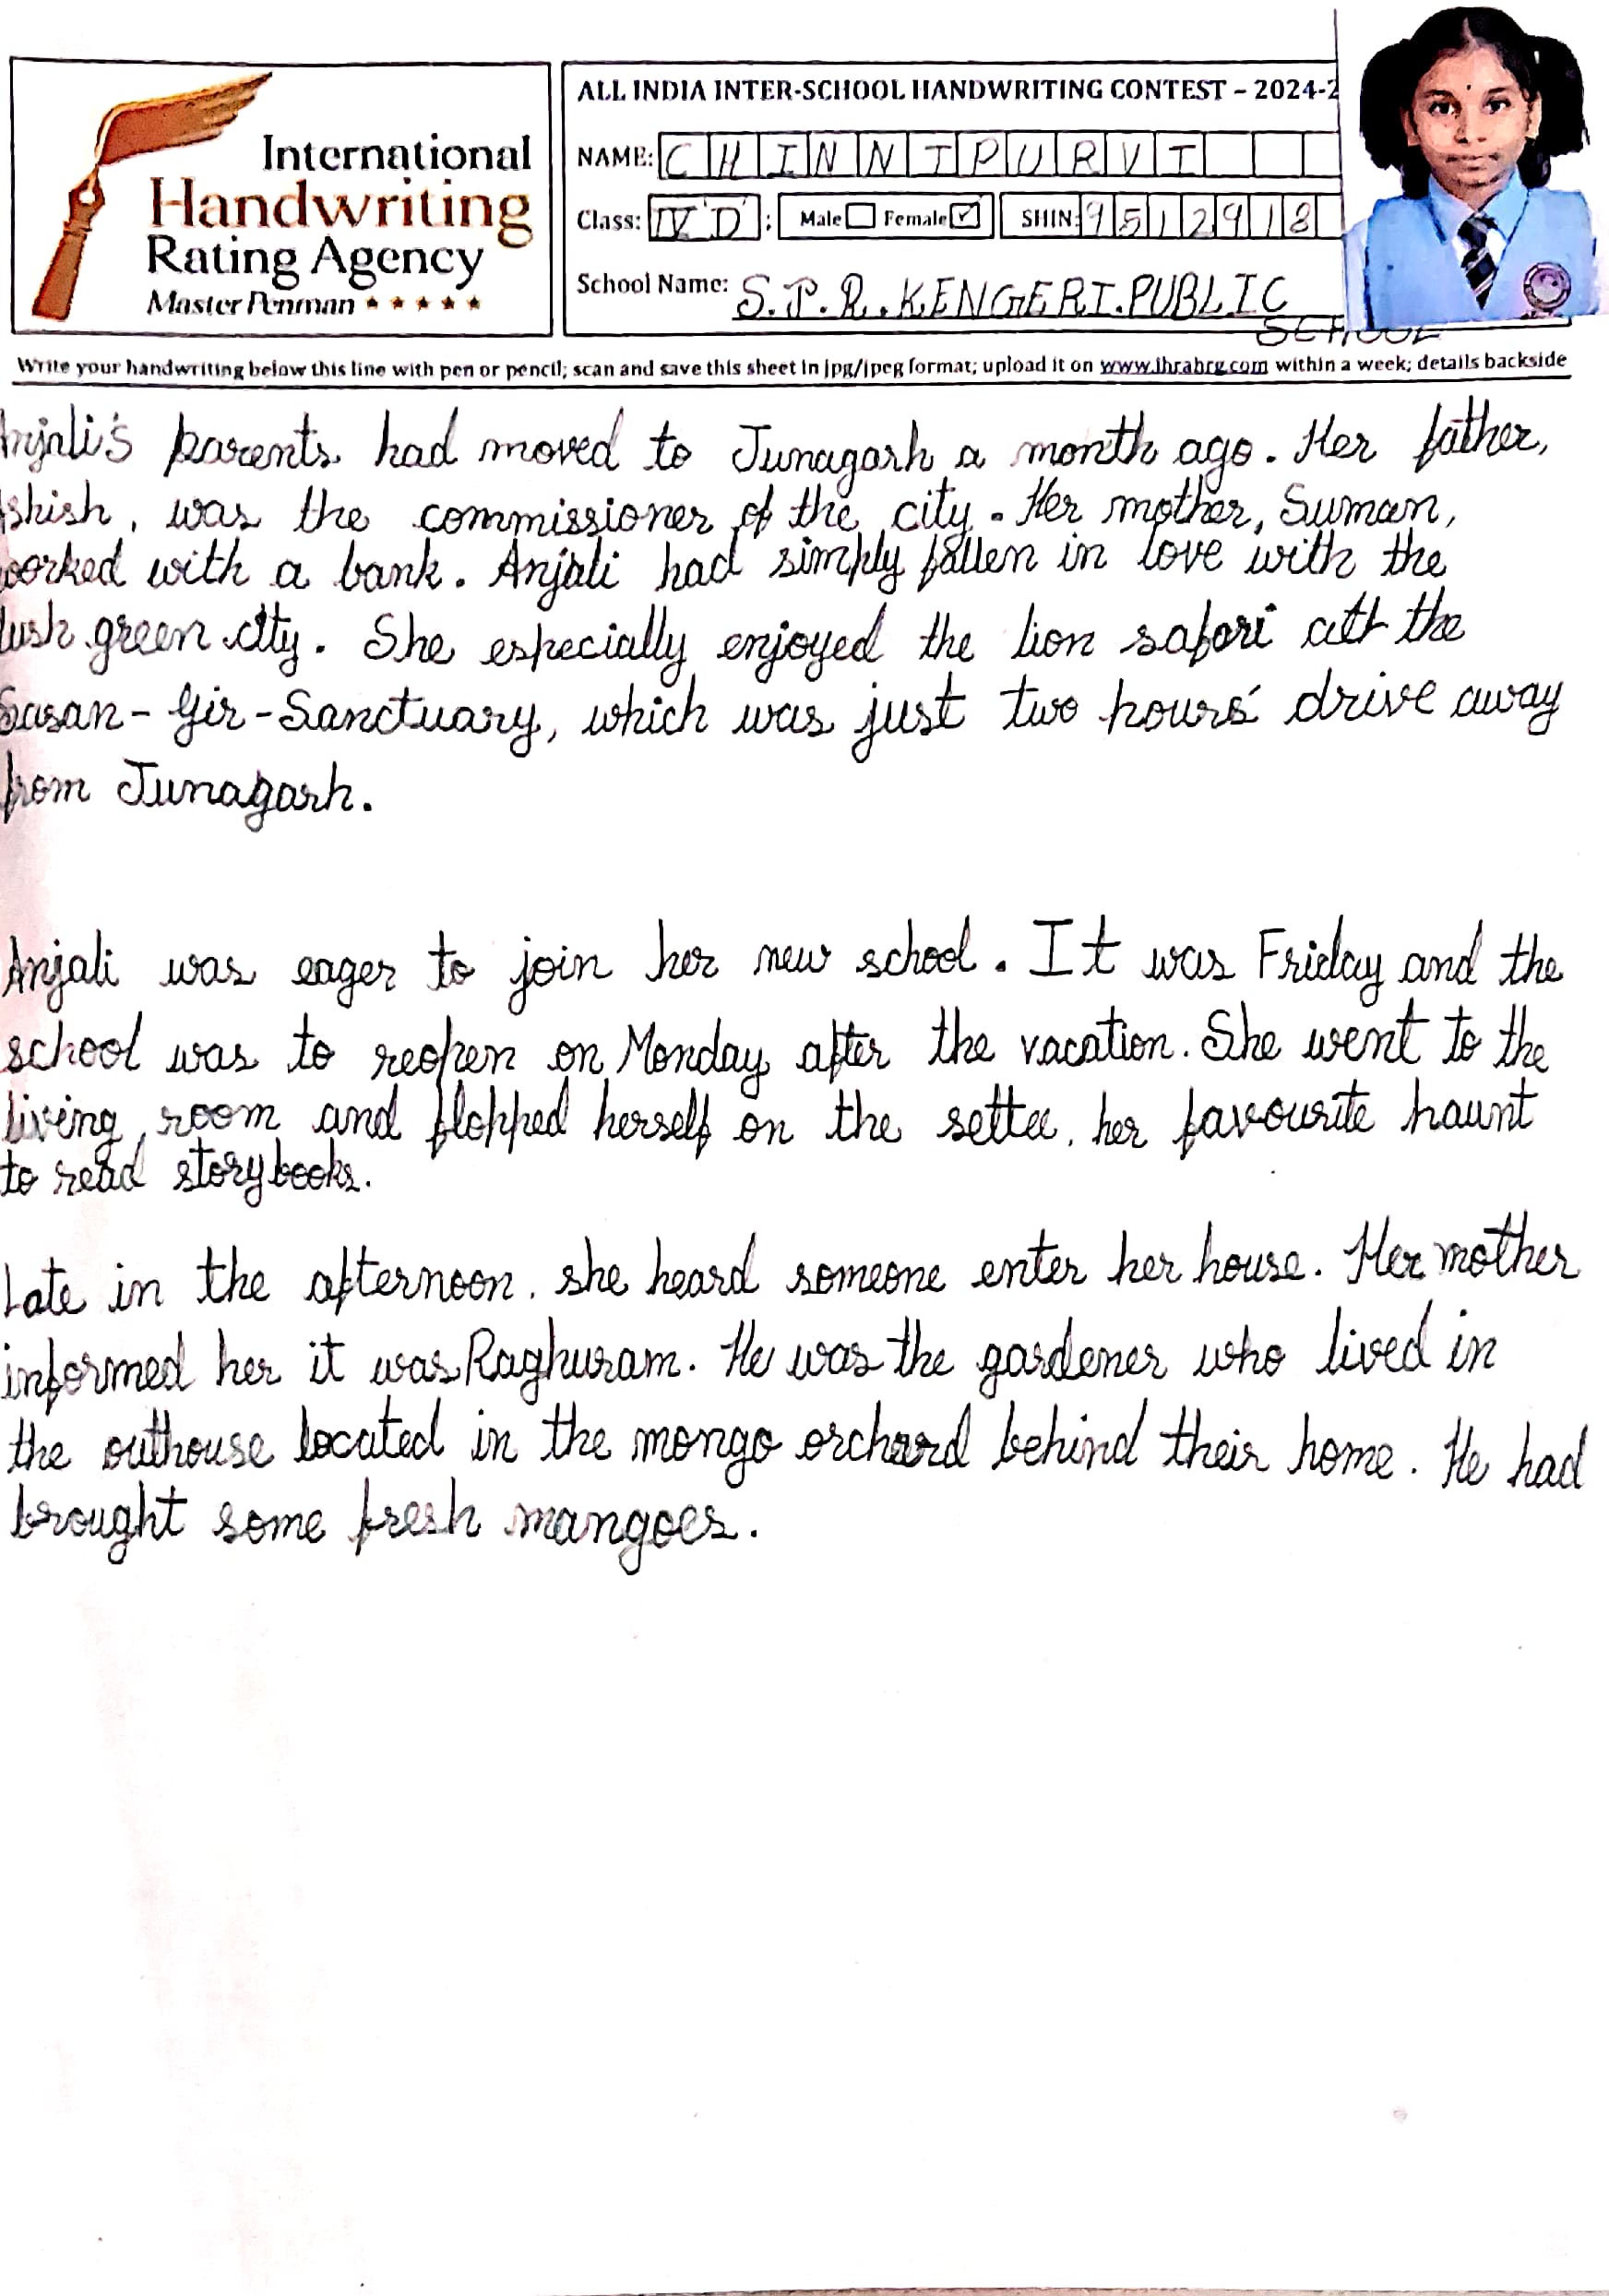 International
Handwriting
Rating Agency
Master Penman
ALL INDIA INTER-SCHOOL HANDWRITING CONTEST – 2024-2
NAME: CHINNIPURVI
Class: IV 'D' : Male Female ✓ SHIN: 9512918
School Name: S.P.R.KENGERI.PUBLIC
SCHOOL
Write your handwriting below this line with pen or pencil; scan and save this sheet in jpg/jpeg format; upload it on www.ihrahrg.com within a week; details backside
njali's parents had moved to Junagarh a month ago. Her father,
shish, was the commissioner of the city. Her mother, Suman,
worked with a bank. Anjali had simply fallen in love with the
lush green city. She especially enjoyed the lion safari att the
Sasan-Gir-Sanctuary, which was just two hours' drive away
from Junagarh.
Anjali was eager to join her new school. It was Friday and the
school was to reopen on Monday after the vacation. She went to the
living room and flopped herself on the settee, her favourite haunt
to read storybooks.
Late in the afternoon, she heard someone enter her house. Her mother
informed her it was Raghuram. He was the gardener who lived in
the outhouse located in the mongo orchard behind their home. He had
brought some fresh mangoes.